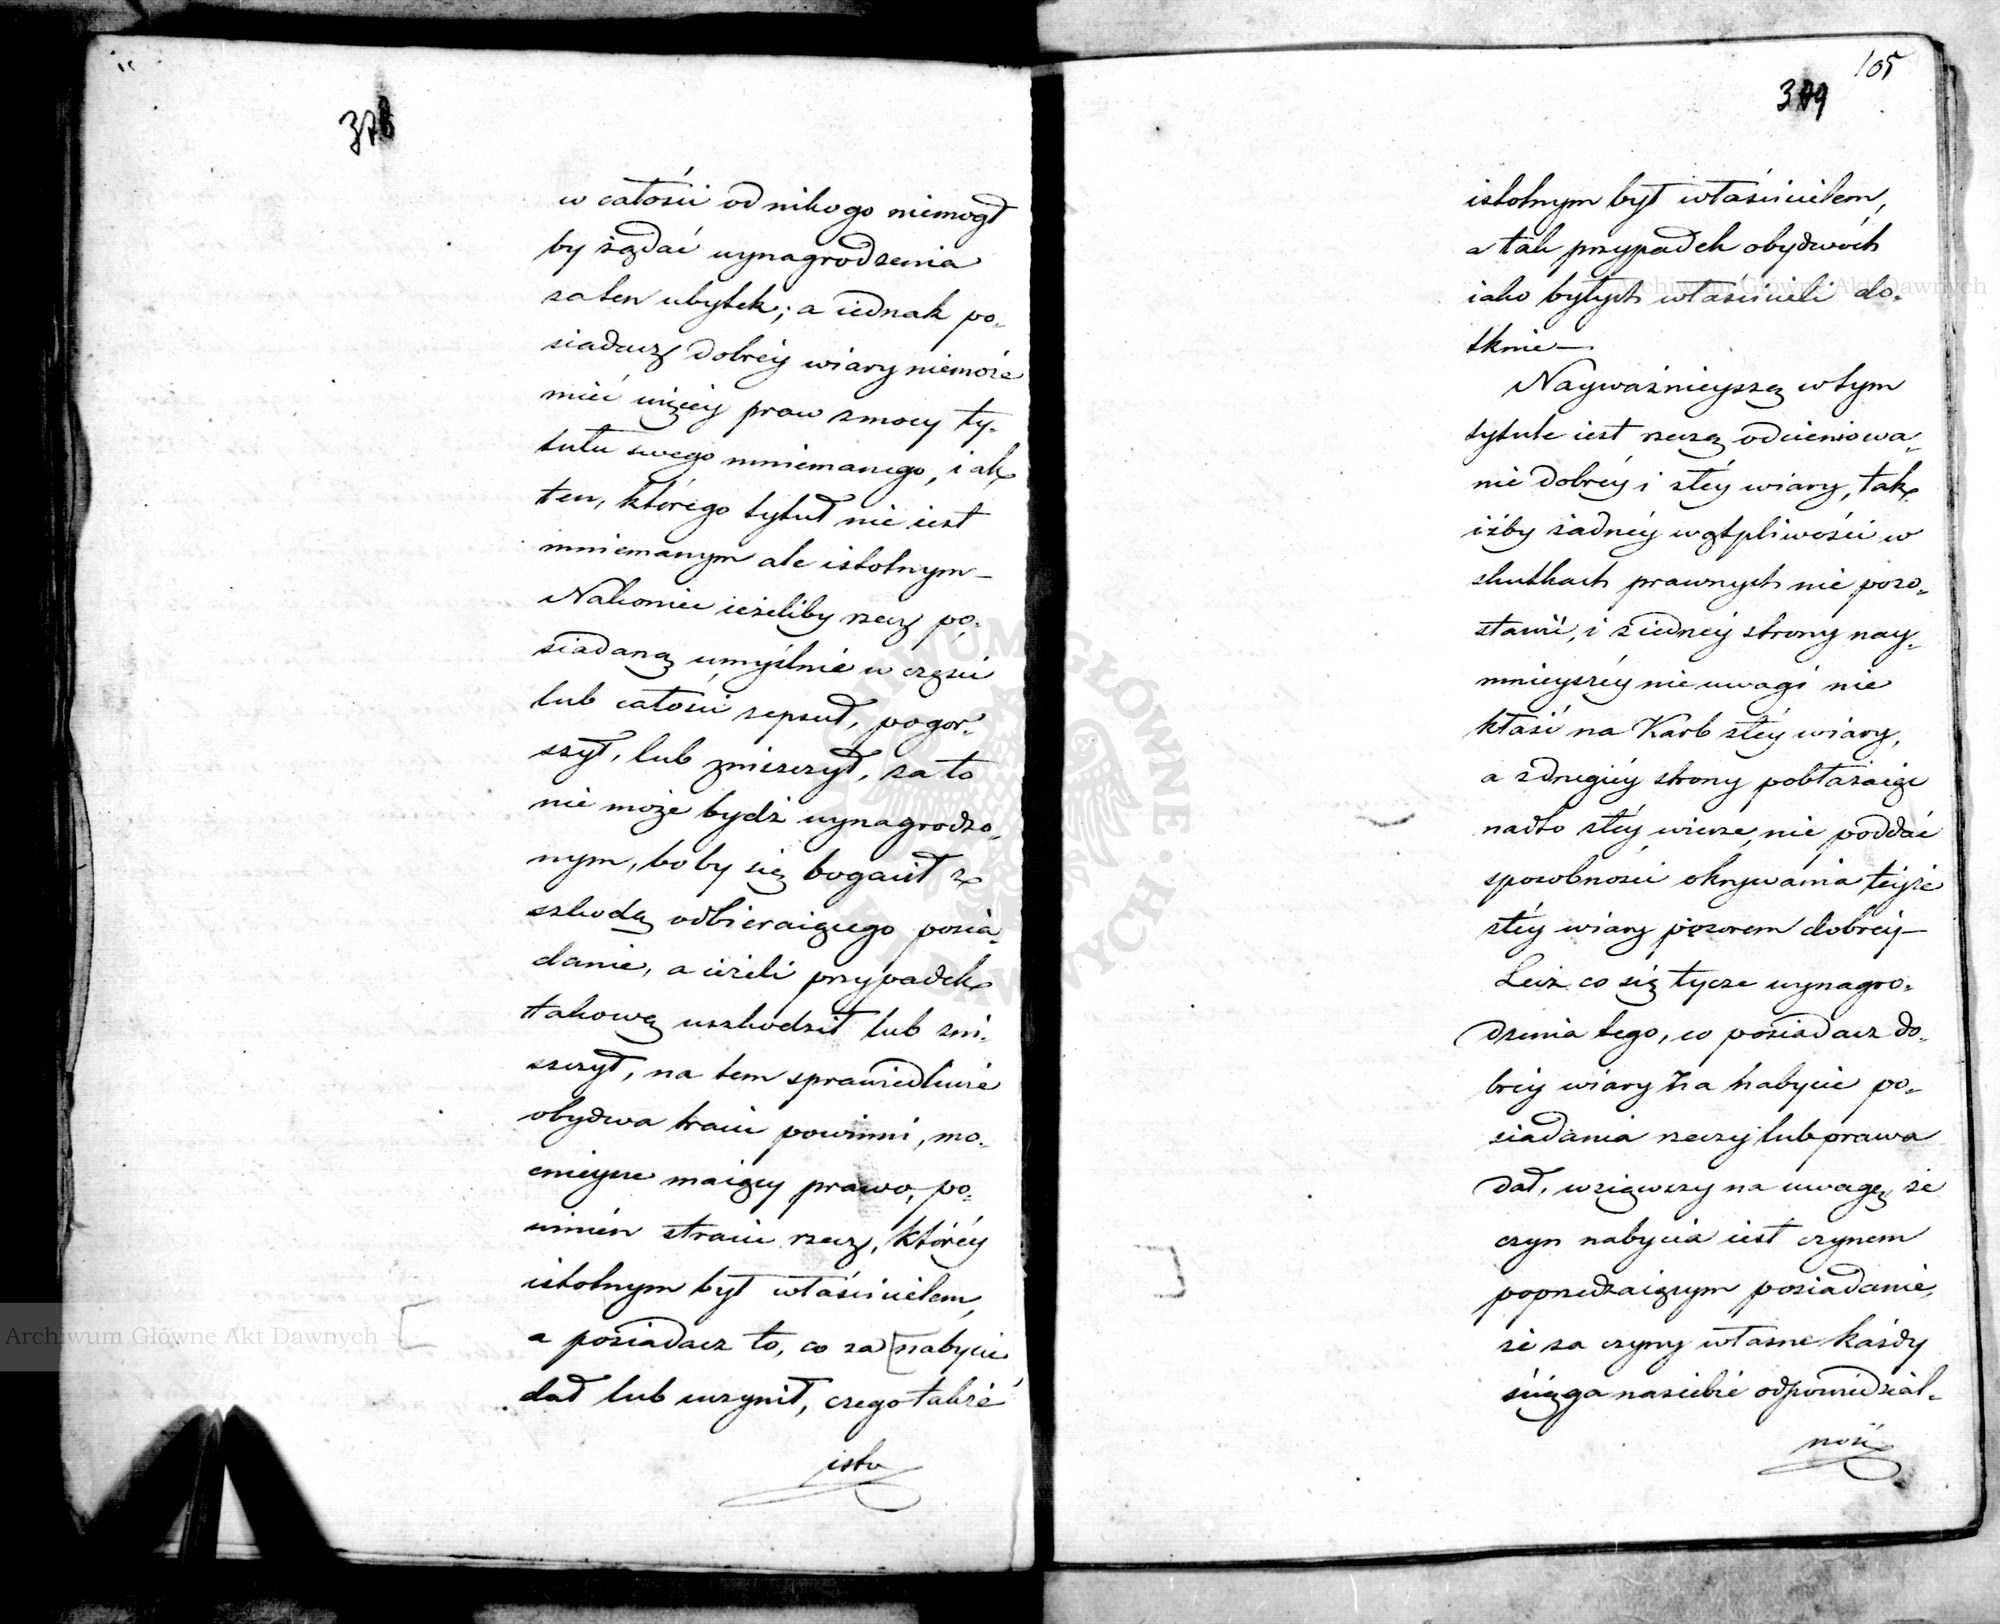 378
w całości od nikogo niemogł
by żądać wynagrodzenia
za ten ubytek; a iednak po-
siadacz dobréy wiary niemoże
mieć więcéy praw z mocy ty-
tułu swego mniemanego, iak
ten, którego tytuł nie iest
mniemanym ale istotnym —
Nakoniec ieżeliby rzecz po-
siadaną umyślnie w części
lub całości zepsuł, pogor-
szył, lub zniszczył, za to
nie może bydź wynagrodzo-
nym, bo by się bogacił z
szkodą odbieraiącego posia-
danie, a ieżeli przypadek
takową uszkodził lub zni-
szczył, na tem sprawiedliwie
obydwa tracić powinni, mo-
cnieysze maiący prawo, po-
winien stracić rzecz, któréy
istotnym był właścicielem,
a posiadacz to, co za nabycie
dał lub uczynił, czego także
isto
105
379
istotnym był właścicielem,
a tak przypadek obydwóch
iako byłych właścicieli do-
tknie —
Nayważnieyszą w tym
tytule iest rzeczą odcieniowa-
nie dobréy i złéy wiary, tak
iżby żadnéy wątpliwości w
skutkach prawnych nie pozo-
stawić, i z iednéy strony nay-
mnieyszéy nieuwagi nie
kłaść na Karb złéy wiary,
a z drugiéy strony pobłażaiąc
nadto złéy wierze, nie poddać
sposobności okrywania teyże
złéy wiary pozorem dobréy —
Lecz co się tycze wynagro-
dzenia tego, co posiadacz do-
bréy wiary za nabycie po-
siadania rzeczy lub prawa
dał, wziąwszy na uwagę, że
czyn nabycia iest czynem
poprzedzaiącym posiadanie,
że za czyny własne każdy
ściąga na siebie odpowiedzial-
ność
Archiwum Główne Akt Dawnych
Archiwum Główne Akt Dawnych
ARCHIWUM GŁÓWNE AKT DAWNYCH